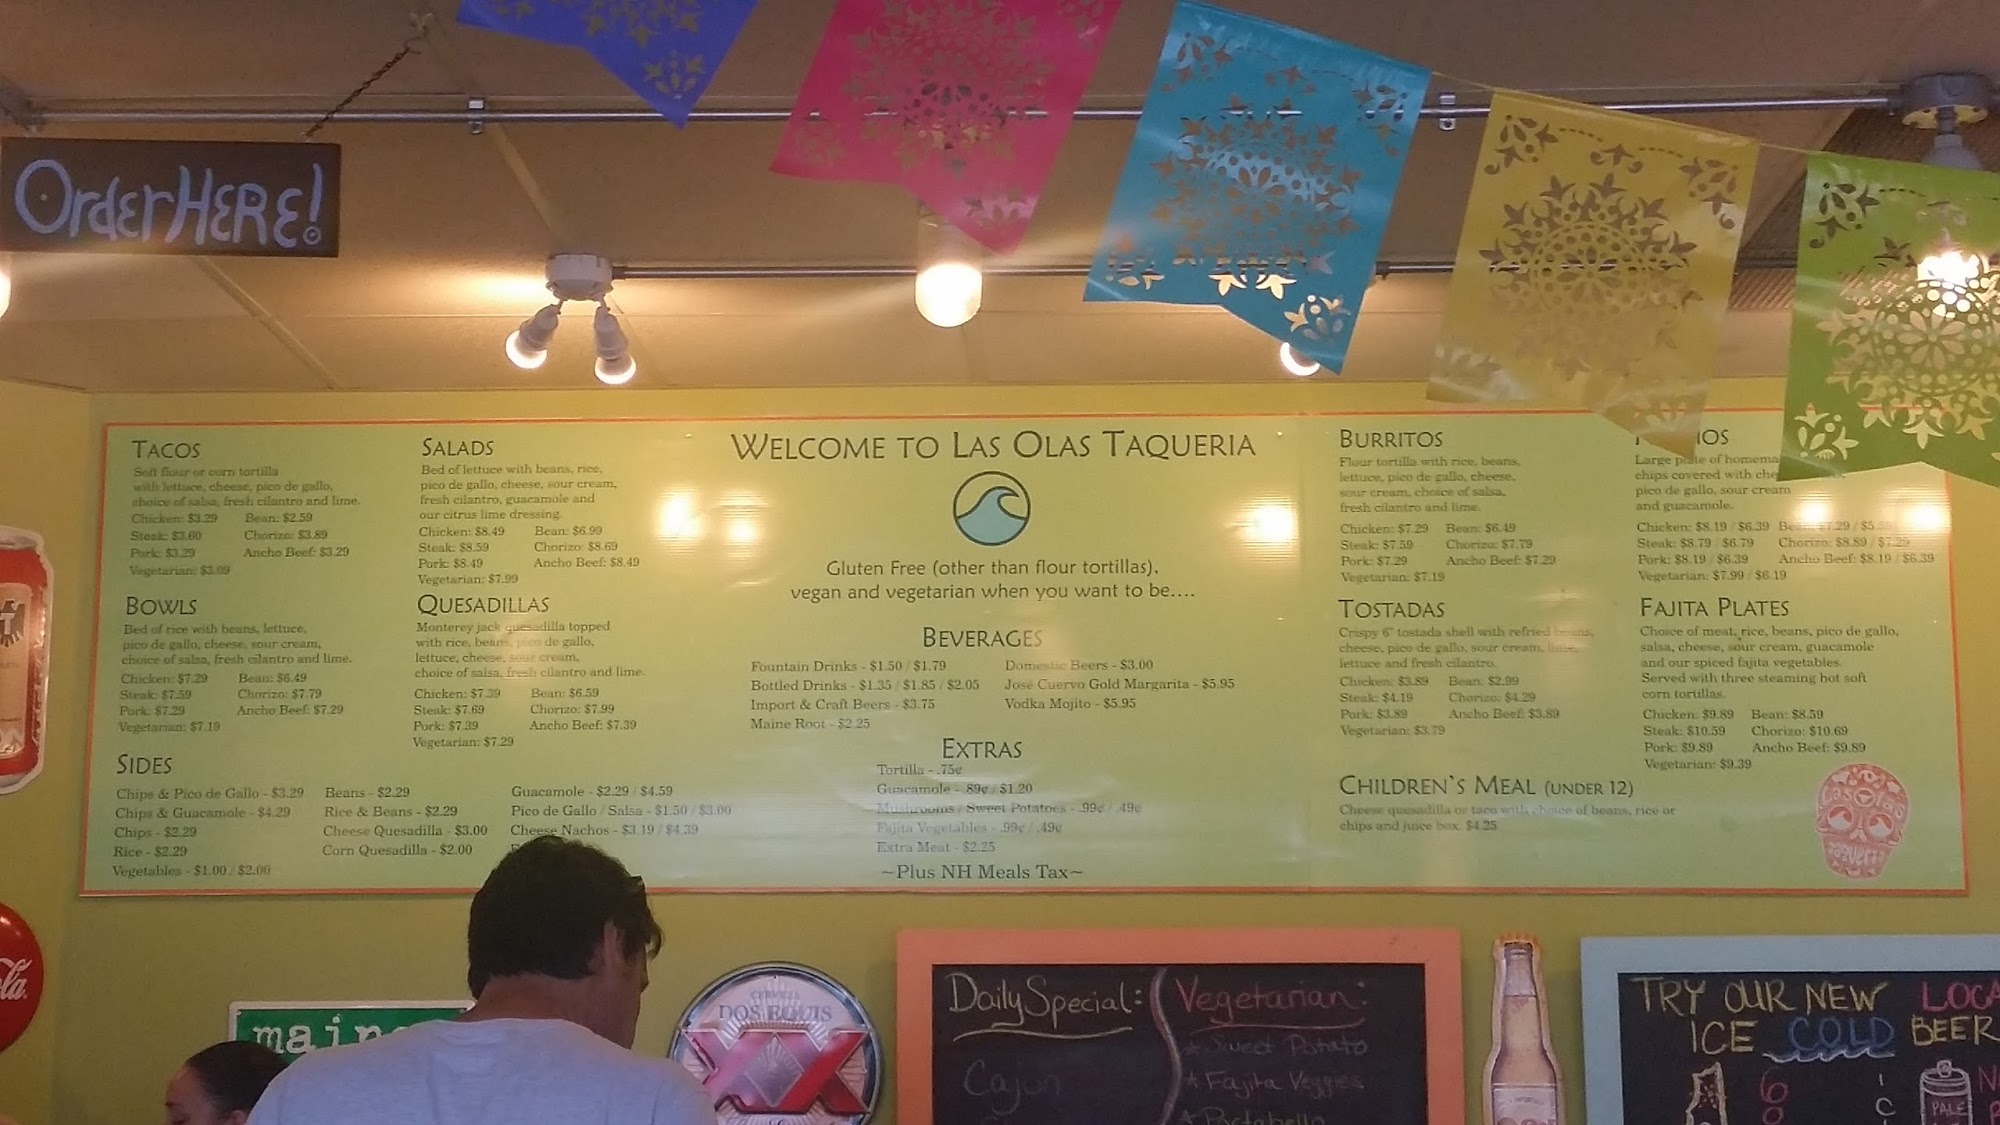 Order HERE!
TACOS
Soft flour or corn tortilla
with lettuce, cheese, pico de gallo,
choice of salsa, fresh cilantro and lime.
Chicken: $3.29 Bean: $2.59
Steak: $3.60 Chorizo: $3.89
Pork: $3.29 Ancho Beef: $3.29
Vegetarian: $3.09
BOWLS
Bed of rice with beans, lettuce,
pico de gallo, cheese, sour cream,
choice of salsa, fresh cilantro and lime.
Chicken: $7.29 Bean: $6.49
Steak: $7.59 Chorizo: $7.79
Pork: $7.29 Ancho Beef: $7.29
Vegetarian: $7.19
SALADS
Bed of lettuce with beans, rice,
pico de gallo, cheese, sour cream,
fresh cilantro, guacamole and
our citrus lime dressing.
Chicken: $8.49 Bean: $6.99
Steak: $8.59 Chorizo: $8.69
Pork: $8.49 Ancho Beef: $8.49
Vegetarian: $7.99
QUESADILLAS
Monterey jack quesadilla topped
with rice, beans, pico de gallo,
lettuce, cheese, sour cream,
choice of salsa, fresh cilantro and lime.
Chicken: $7.39 Bean: $6.59
Steak: $7.69 Chorizo: $7.99
Pork: $7.39 Ancho Beef: $7.39
Vegetarian: $7.29
SIDES
Chips & Pico de Gallo - $3.29 Beans - $2.29 Guacamole - $2.29 / $4.59
Chips & Guacamole - $4.29 Rice & Beans - $2.29 Pico de Gallo / Salsa - $1.50 / $3.00
Chips - $2.29 Cheese Quesadilla - $3.00 Cheese Nachos - $3.19 / $4.39
Rice - $2.29 Corn Quesadilla - $2.00
Vegetables - $1.00 / $2.00
WELCOME TO LAS OLAS TAQUERIA
Gluten Free (other than flour tortillas),
vegan and vegetarian when you want to be....
BEVERAGES
Fountain Drinks - $1.50 / $1.79 Domestic Beers - $3.00
Bottled Drinks - $1.35 / $1.85 / $2.05 José Cuervo Gold Margarita - $5.95
Import & Craft Beers - $3.75 Vodka Mojito - $5.95
Maine Root - $2.25
EXTRAS
Tortilla - .75¢
Guacamole - .89¢ / $1.20
Mushrooms / Sweet Potatoes - .99¢ / .49¢
Fajita Vegetables - .99¢ / .49¢
Extra Meat - $2.25
~Plus NH Meals Tax~
BURRITOS
Flour tortilla with rice, beans,
lettuce, pico de gallo, cheese,
sour cream, choice of salsa,
fresh cilantro and lime.
Chicken: $7.29 Bean: $6.49
Steak: $7.59 Chorizo: $7.79
Pork: $7.29 Ancho Beef: $7.29
Vegetarian: $7.19
TOSTADAS
Crispy 6" tostada shell with refried beans,
cheese, pico de gallo, sour cream, lime,
lettuce and fresh cilantro.
Chicken: $3.89 Bean: $2.99
Steak: $4.19 Chorizo: $4.29
Pork: $3.89 Ancho Beef: $3.89
Vegetarian: $3.79
CHILDREN'S MEAL (UNDER 12)
Cheese quesadilla or taco with choice of beans, rice or
chips and juice box. $4.25
Large plate of
chips covered with
pico de gallo, sour cream
and guacamole.
Chicken: $8.19 / $6.39 $7.29 /
Steak: $8.79 / $6.79 Chorizo: $8.89 / $7.29
Pork: $8.19 / $6.39 Ancho Beef: $8.19 / $6.39
Vegetarian: $7.99 / $6.19
FAJITA PLATES
Choice of meat, rice, beans, pico de gallo,
salsa, cheese, sour cream, guacamole
and our spiced fajita vegetables.
Served with three steaming hot soft
corn tortillas.
Chicken: $9.89 Bean: $8.59
Steak: $10.59 Chorizo: $10.69
Pork: $9.89 Ancho Beef: $9.89
Vegetarian: $9.39
Las Olas
Taqueria
CERVEZA
DOS EQUIS
XX
Daily Special:
Cajun
Vegetarian:
Sweet Potato
Fajita Veggies
Portabella
TRY OUR NEW
ICE COLD BEER
PALE